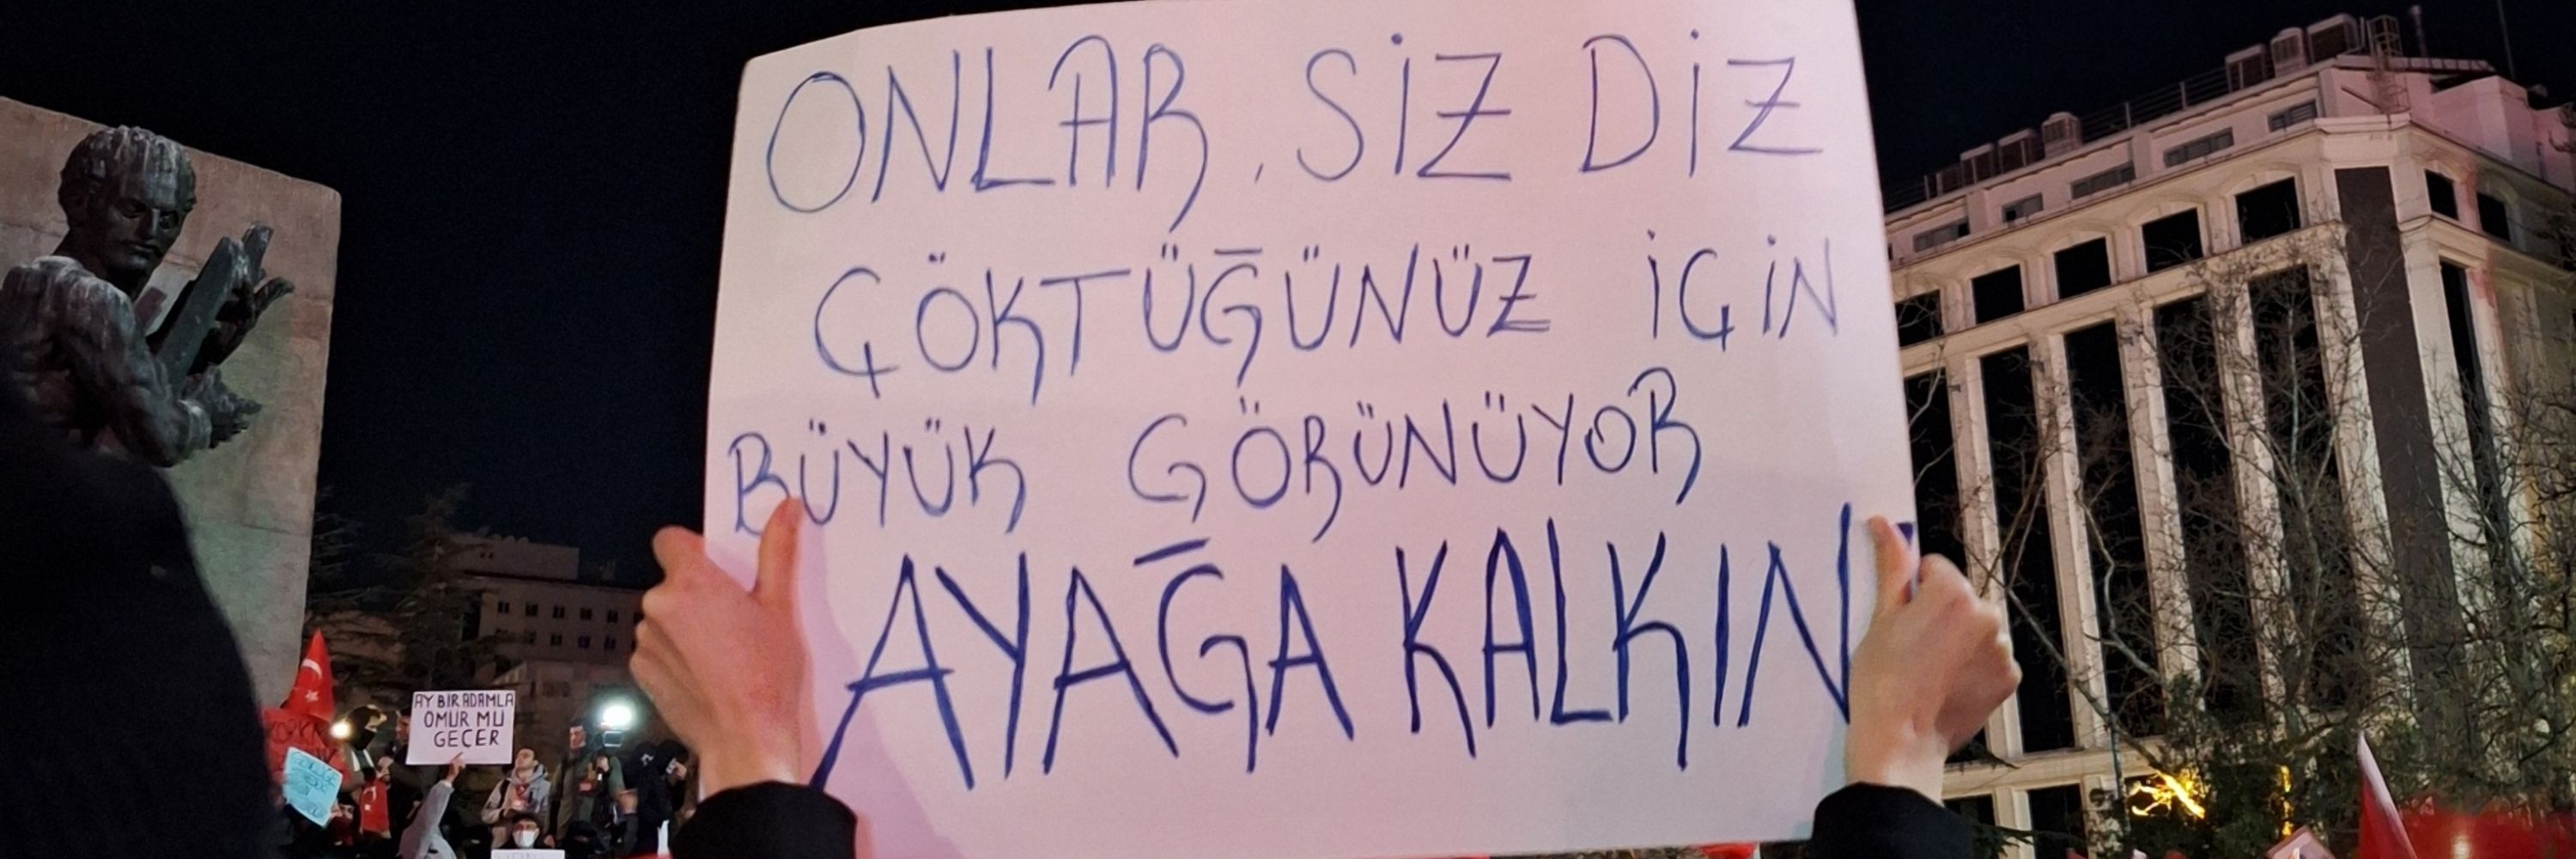 ONLAR, SİZ DİZ
ÇÖKTÜĞÜNÜZ İÇİN
BÜYÜK GÖRÜNÜYOR
AYAĞA KALKIN
AY BİR ADAMLA
ÖMÜR MÜ
GEÇER